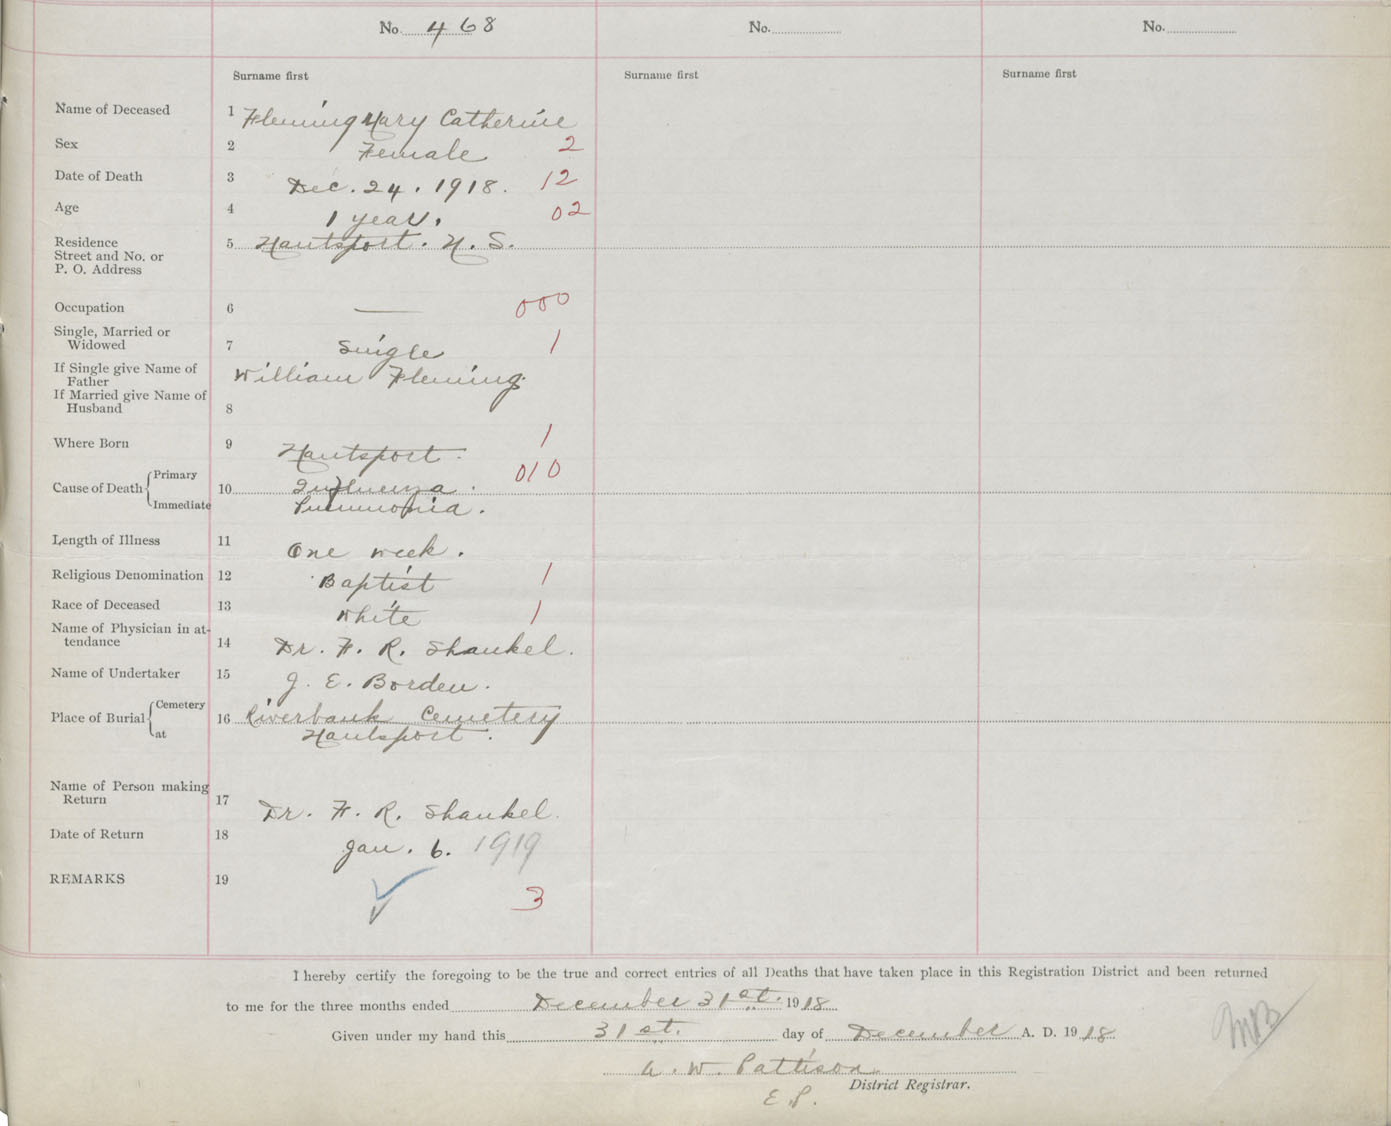 No. 468 No. No.
Surname first Surname first Surname first
Name of Deceased 1 Fleming Mary Catherine
Sex 2 Female 2
Date of Death 3 Dec. 24. 1918. 12
Age 4 1 year. 02
Residence 5 Hantsport. N. S.
Street and No. or
P. O. Address
Occupation 6 — 000
Single, Married or
Widowed 7 Single 1
If Single give Name of William Fleming.
Father
If Married give Name of
Husband 8
Where Born 9 Hantsport. 1
Cause of Death { Primary 10 Influenza. 010
Immediate Pneumonia.
Length of Illness 11 One week.
Religious Denomination 12 Baptist 1
Race of Deceased 13 White 1
Name of Physician in at-
tendance 14 Dr. F. R. Shankel.
Name of Undertaker 15 J. E. Borden.
Place of Burial { Cemetery 16 Riverbank Cemetery
at Hantsport.
Name of Person making
Return 17 Dr. F. R. Shankel.
Date of Return 18 Jan. 6. 1919
REMARKS 19 3
I hereby certify the foregoing to be the true and correct entries of all Deaths that have taken place in this Registration District and been returned
to me for the three months ended December 31st. 1918
Given under my hand this 31st. day of December A. D. 1918
A. W. Pattison
District Registrar.
E. P.